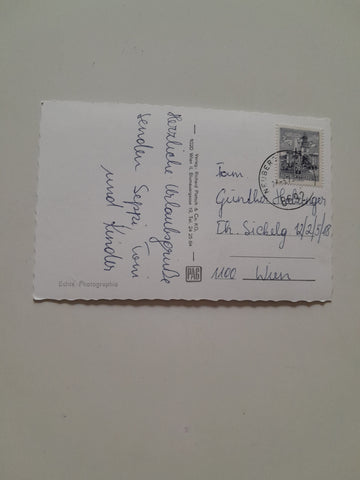 Herzliche Urlaubsgrüße
senden Seppi, Toni
und Kinder
Echte Photographie
Verlag Richard Pietsch & Co. KG.
1020 Wien II, Blumauergasse 12, Tel. 24 25 64
PAG
NEUBERG
Fam
Günther
Th. Sickelg 12/2/5/18
1100 Wien